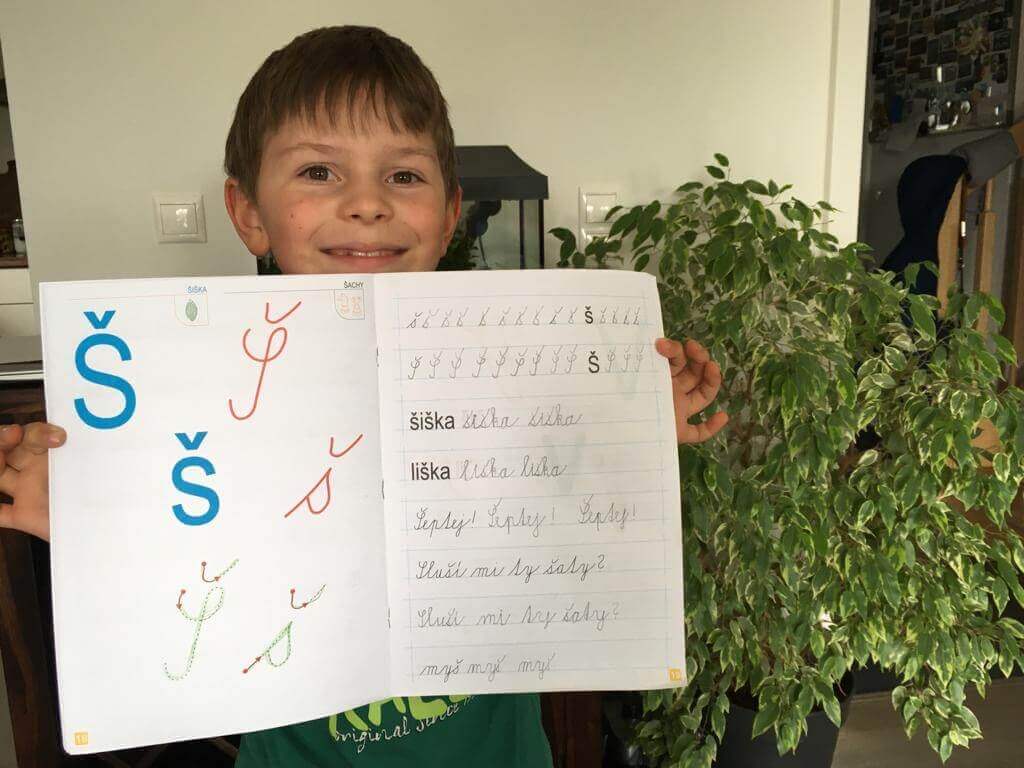 ŠIŠKA
ŠACHY
Š Š
Š š
Š š
18
š š š š š š š š š š š š š š š
Š Š Š Š Š Š Š Š Š Š Š Š Š
šiška šiška šiška
liška liška liška
Šeptej! Šeptej! Šeptej!
Sluší mi ty šaty?
Sluší mi ty šaty?
myš myš myš
19
original since